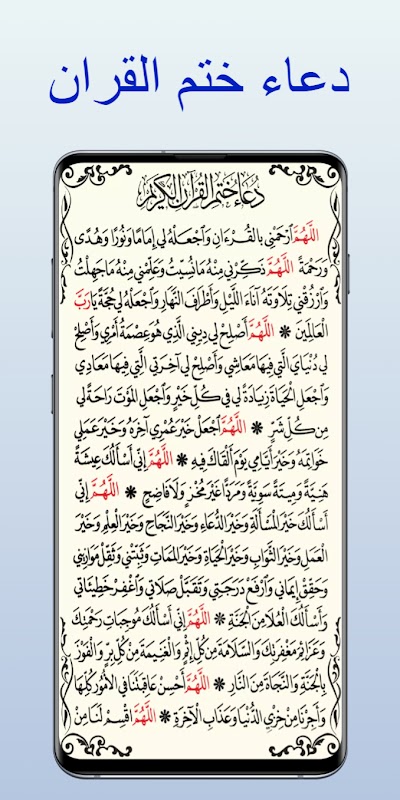 دعاء ختم القران
دُعَاءُ خَتْمِ الْقُرْآنِ الْكَرِيْمِ
اللَّهُمَّ ٱرْحَمْنِي بالقُرْءَانِ وَٱجْعَلهُ لِي إِمَامًا وَنُورًا وَهُدًى
وَرَحْمَةً اللَّهُمَّ ذَكِّرْنِي مِنْهُ مَا نَسِيتُ وَعَلِّمْنِي مِنْهُ مَا جَهِلْتُ
وَٱرْزُقْنِي تِلَاوَتَهُ آنَاءَ اللَّيْلِ وَأَطْرَافَ النَّهَارِ وَٱجْعَلْهُ لِي حُجَّةً يَا رَبَّ
العَالَمِينَ * اللَّهُمَّ أَصْلِحْ لِي دِينِي الَّذِي هُوَ عِصْمَةُ أَمْرِي وَأَصْلِحْ
لِي دُنْيَايَ الَّتِي فِيهَا مَعَاشِي وَأَصْلِحْ لِي آخِرَتِي الَّتِي فِيهَا مَعَادِي
وَٱجْعَلِ الْحَيَاةَ زِيَادَةً لِي فِي كُلِّ خَيْرٍ وَٱجْعَلِ المَوْتَ رَاحَةً لِي
مِن كُلِّ شَرٍّ * اللَّهُمَّ ٱجْعَلْ خَيْرَ عُمْرِي آخِرَهُ وَخَيْرَ عَمَلِي
خَوَاتِمَهُ وَخَيْرَ أَيَّامِي يَوْمَ أَلْقَاكَ فِيهِ * اللَّهُمَّ إِنِّي أَسْأَلُكَ عِيشَةً
هَنِيَّةً وَمِيتَةً سَوِيَّةً وَمَرَدًّا غَيْرَ مُخْزٍ وَلَا فَاضِحٍ * اللَّهُمَّ إِنِّي
أَسْأَلُكَ خَيْرَ المَسْأَلَةِ وَخَيْرَ الدُّعَاءِ وَخَيْرَ النَّجَاحِ وَخَيْرَ العِلْمِ وَخَيْرَ
العَمَلِ وَخَيْرَ الثَّوَابِ وَخَيْرَ الحَيَاةِ وَخَيْرَ المَمَاتِ وَثَبِّتْنِي وَثَقِّلْ مَوَازِينِي
وَحَقِّقْ إِيمَانِي وَٱرْفَعْ دَرَجَتِي وَتَقَبَّلْ صَلَاتِي وَٱغْفِرْ خَطِيئَاتِي
وَأَسْأَلُكَ العُلَا مِنَ الْجَنَّةِ * اللَّهُمَّ إِنِّي أَسْأَلُكَ مُوجِبَاتِ رَحْمَتِكَ
وَعَزَائِمَ مَغْفِرَتِكَ وَالسَّلَامَةَ مِن كُلِّ إِثْمٍ وَالْغَنِيمَةَ مِن كُلِّ بِرٍّ وَالْفَوْزَ
بِالْجَنَّةِ وَالنَّجَاةَ مِنَ النَّارِ * اللَّهُمَّ أَحْسِنْ عَاقِبَتَنَا فِي الأُمُورِ كُلِّهَا
وَأَجِرْنَا مِنْ خِزْيِ الدُّنْيَا وَعَذَابِ الآخِرَةِ * اللَّهُمَّ اقْسِمْ لَنَا مِنْ